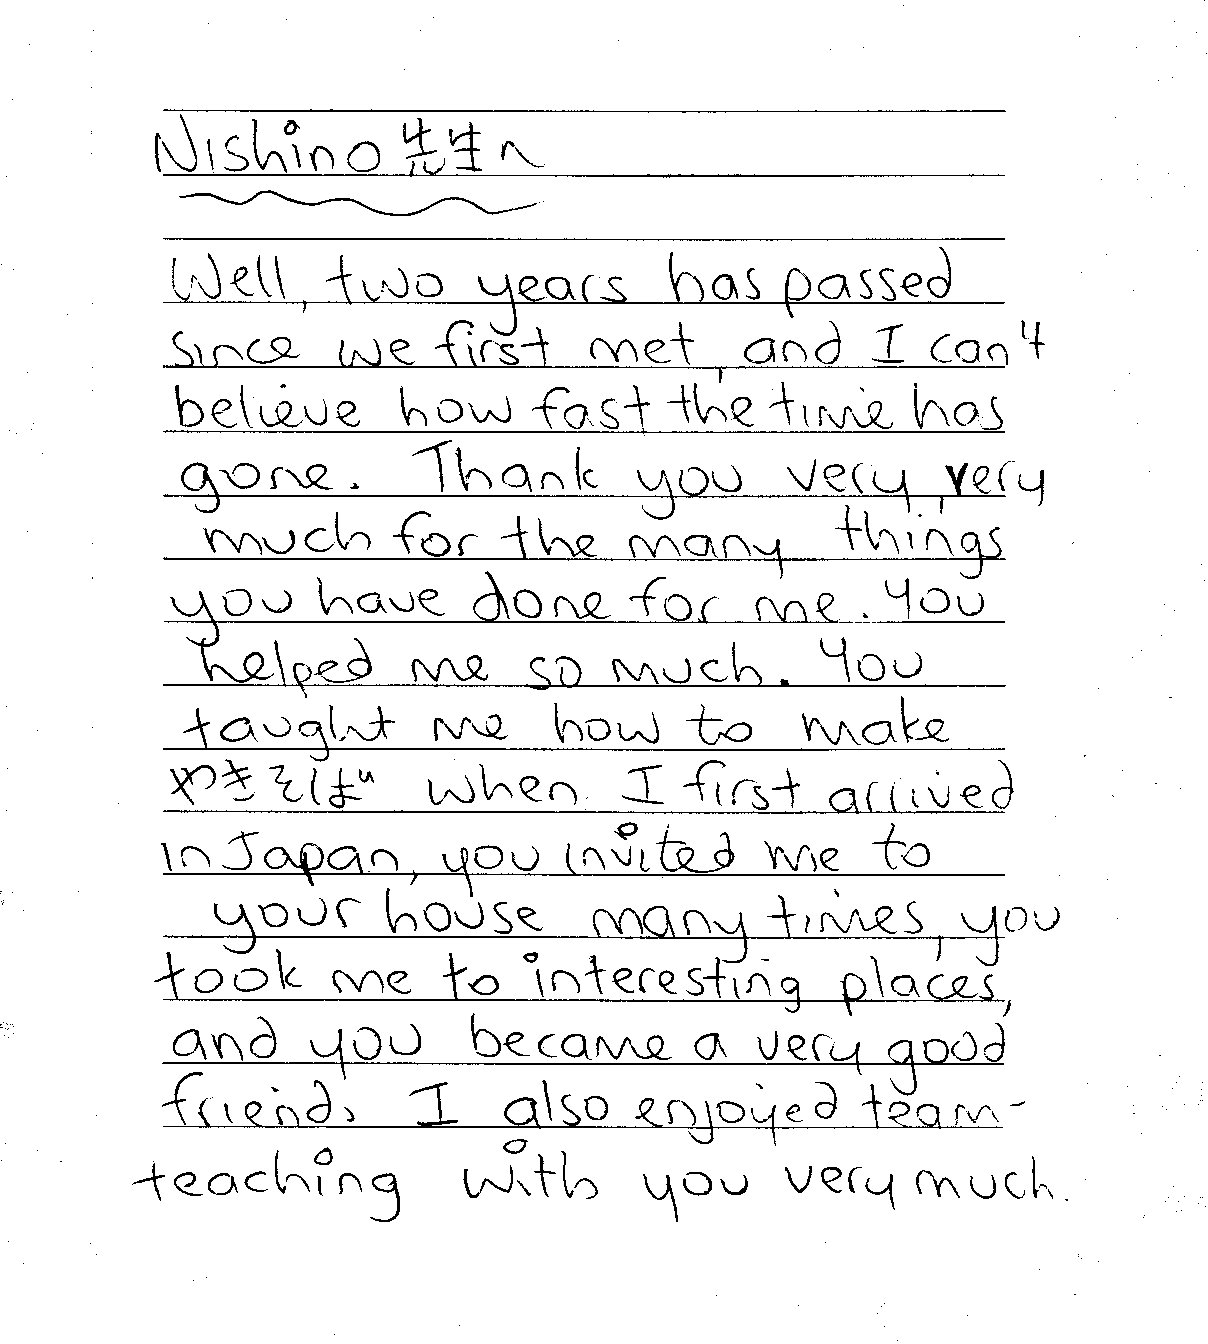 Nishino 先生へ
Well, two years has passed
since we first met, and I can't
believe how fast the time has
gone. Thank you very, very
much for the many things
you have done for me. You
helped me so much. You
taught me how to make
やきそば when I first arrived
in Japan, you invited me to
your house many times, you
took me to interesting places,
and you became a very good
friend. I also enjoyed team-
teaching with you very much.